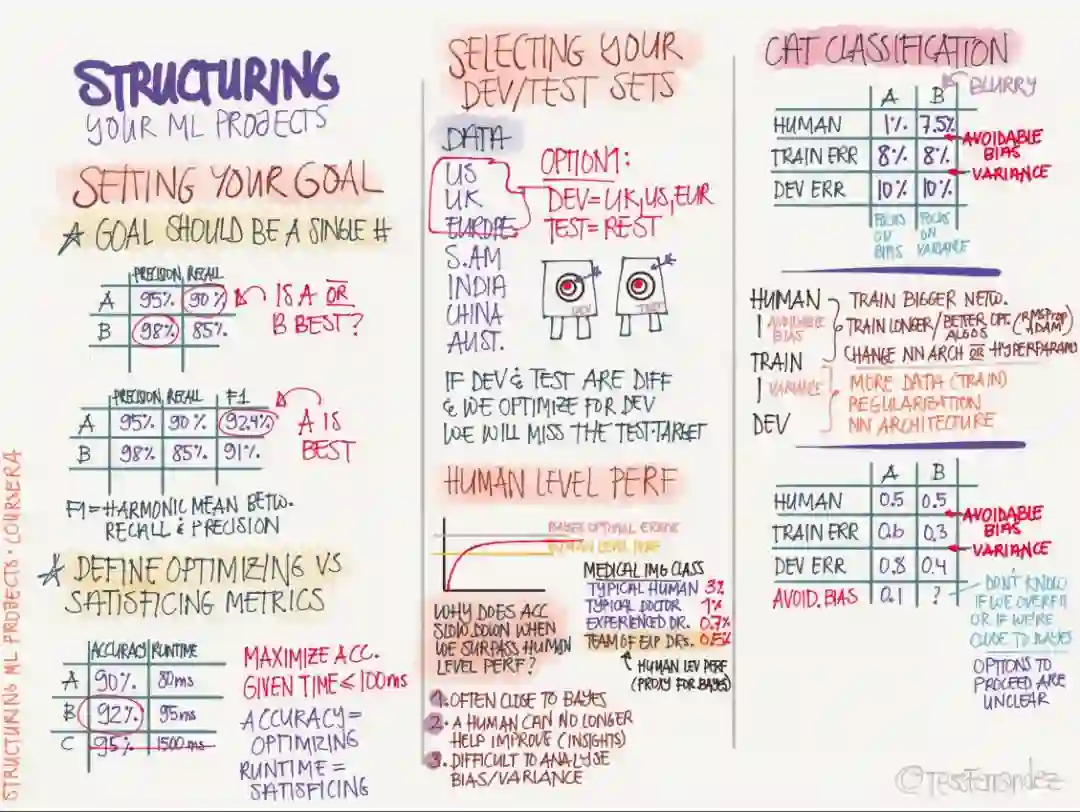 STRUCTURING
YOUR ML PROJECTS
SETTING YOUR GOAL
☆ GOAL SHOULD BE A SINGLE #
PRECISION RECALL
A 95% 90%
B 98% 85%
IS A OR
B BEST?
PRECISION RECALL F1
A 95% 90% 92.4%
B 98% 85% 91%
A IS
BEST
F1 = HARMONIC MEAN BETW.
RECALL & PRECISION
☆ DEFINE OPTIMIZING VS
SATISFICING METRICS
ACCURACY RUNTIME
A 90% 80ms
B 92% 95ms
C 95% 1500 ms
MAXIMIZE ACC.
GIVEN TIME ≤ 100ms
ACCURACY =
OPTIMIZING
RUNTIME =
SATISFICING
STRUCTURING ML PROJECTS · COURSERA
SELECTING YOUR
DEV/TEST SETS
DATA
US
UK
EUROPE
S.AM
INDIA
CHINA
AUST.
OPTION1:
DEV = UK, US, EUR
TEST = REST
DEV
TEST
IF DEV & TEST ARE DIFF
& WE OPTIMIZE FOR DEV
WE WILL MISS THE TEST-TARGET
HUMAN LEVEL PERF
BAYES OPTIMAL ERROR
HUMAN LEVEL PERF
WHY DOES ACC
SLOW DOWN WHEN
WE SURPASS HUMAN
LEVEL PERF?
MEDICAL IMG CLASS
TYPICAL HUMAN 3%
TYPICAL DOCTOR 1%
EXPERIENCED DR. 0.7%
TEAM OF EXP DRS. 0.5%
HUMAN LEV PERF
(PROXY FOR BAYES)
1. OFTEN CLOSE TO BAYES
2. A HUMAN CAN NO LONGER
HELP IMPROVE (INSIGHTS)
3. DIFFICULT TO ANALYSE
BIAS/VARIANCE
CAT CLASSIFICATION
BLURRY
A B
HUMAN 1% 7.5%
TRAIN ERR 8% 8%
DEV ERR 10% 10%
AVOIDABLE
BIAS
VARIANCE
FOCUS
ON
BIAS
FOCUS
ON
VARIANCE
HUMAN
AVOIDABLE
BIAS
TRAIN
VARIANCE
DEV
TRAIN BIGGER NETW.
TRAIN LONGER/BETTER OPT. ALGOS (RMSPROP ADAM)
CHANGE NN ARCH OR HYPERPARAMS
MORE DATA (TRAIN)
REGULARIZATION
NN ARCHITECTURE
A B
HUMAN 0.5 0.5
TRAIN ERR 0.6 0.3
DEV ERR 0.8 0.4
AVOID. BIAS 0.1 ?
AVOIDABLE
BIAS
VARIANCE
DON'T KNOW
IF WE OVERFIT
OR IF WE'RE
CLOSE TO BAYES
OPTIONS TO
PROCEED ARE
UNCLEAR
©TessFerrandez